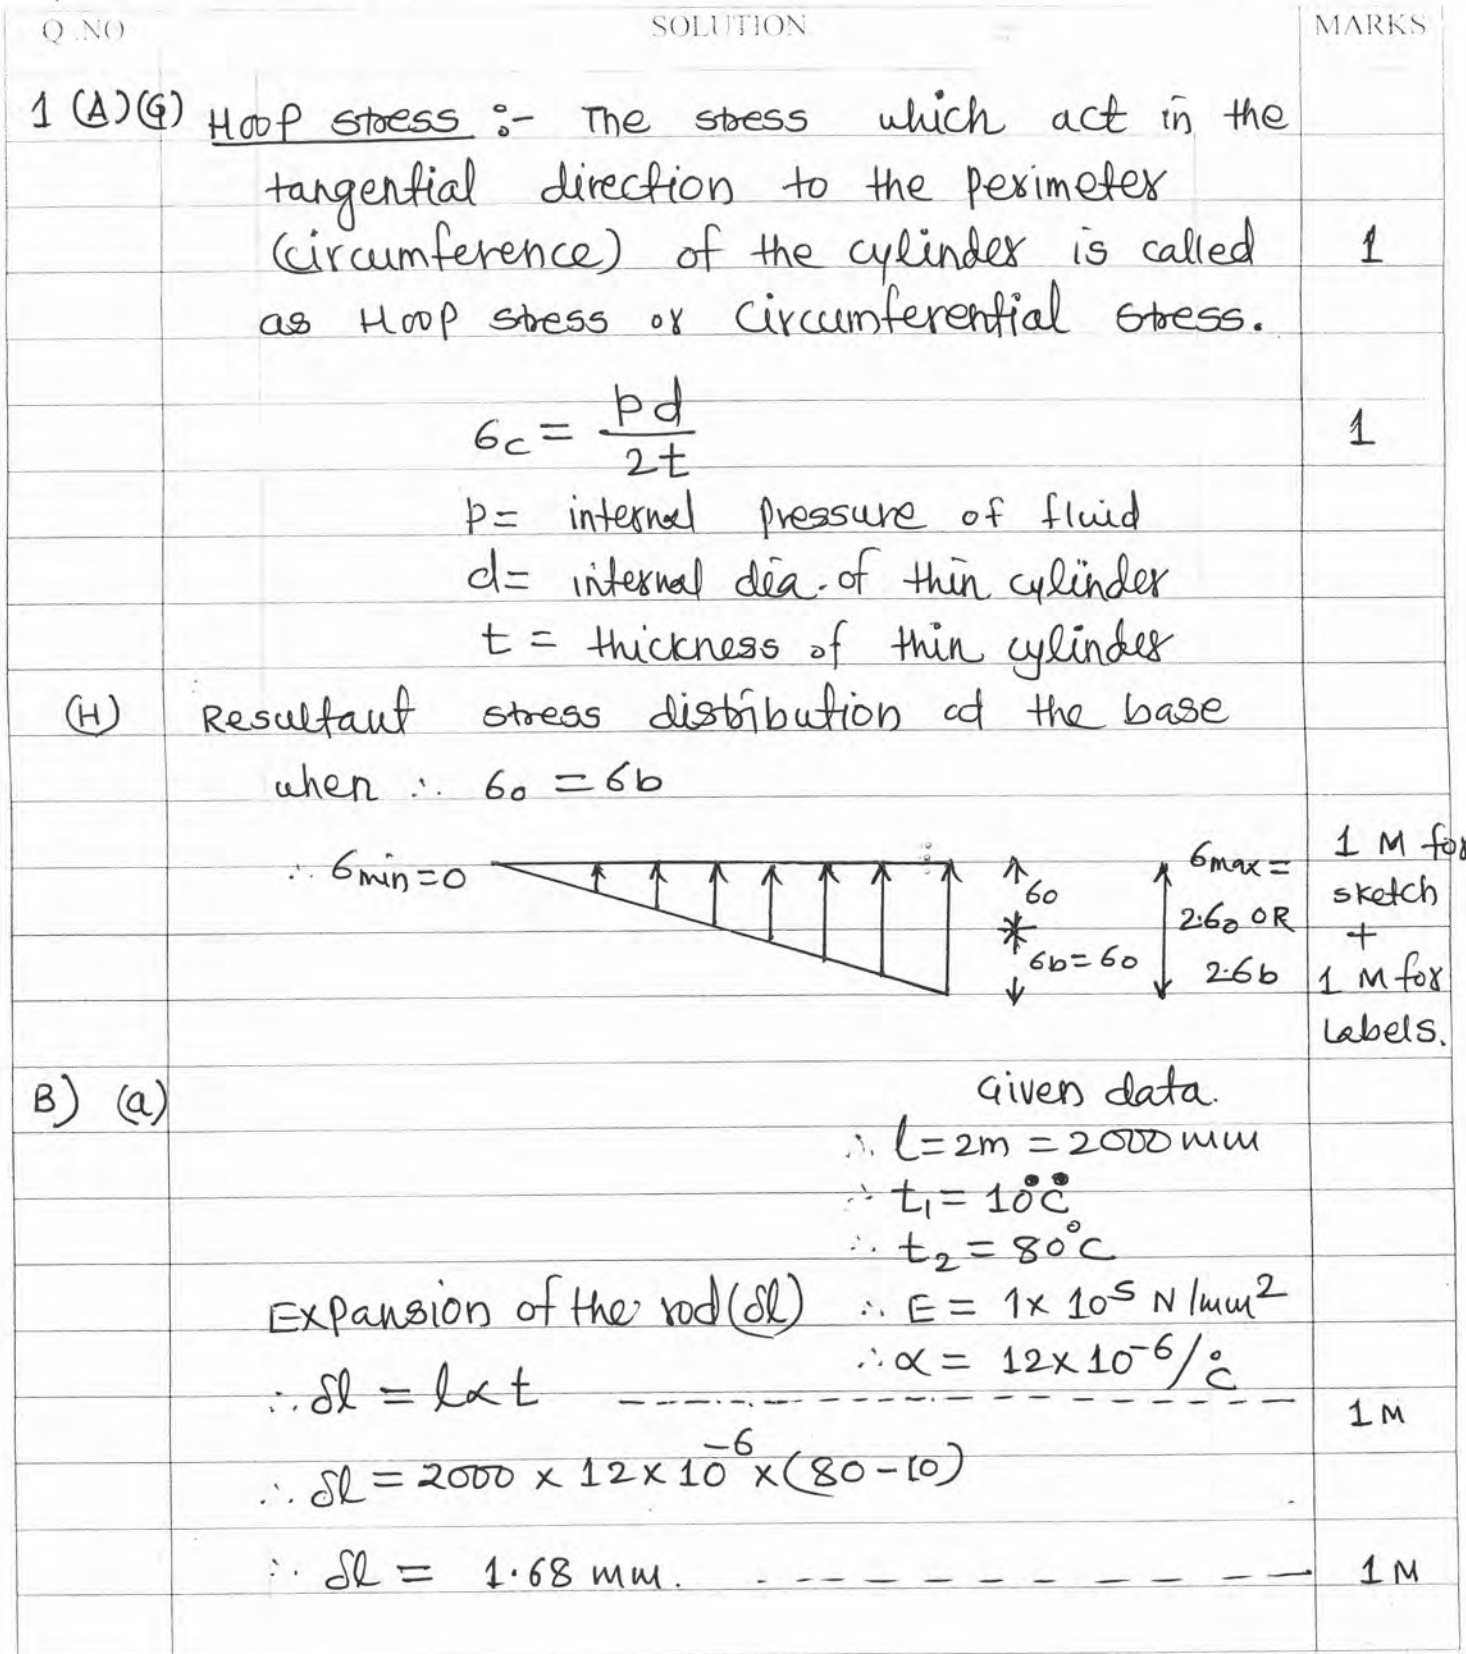 Q.NO SOLUTION MARKS
1 (A)(G) Hoop stress :- The stress which act in the
tangential direction to the perimeter
(circumference) of the cylinder is called 1
as Hoop stress or circumferential stress.
σc = pd/2t 1
p = internal pressure of fluid
d = internal dia. of thin cylinder
t = thickness of thin cylinder
(H) Resultant stress distribution at the base
when ∴ σo = σb
∴ σmin = 0
σo
σb = σo
σmax =
2.σo OR
2.σb
1 M for
sketch
+
1 M for
Labels.
B) (a) Given data.
∴ l = 2m = 2000 mm
∴ t₁ = 10°C
∴ t₂ = 80°C
Expansion of the rod (δl) ∴ E = 1 x 10⁵ N/mm²
∴ α = 12 x 10⁻⁶/°C
∴ δl = l α t 1 M
∴ δl = 2000 x 12 x 10⁻⁶ x (80 - 10)
∴ δl = 1.68 mm. 1 M